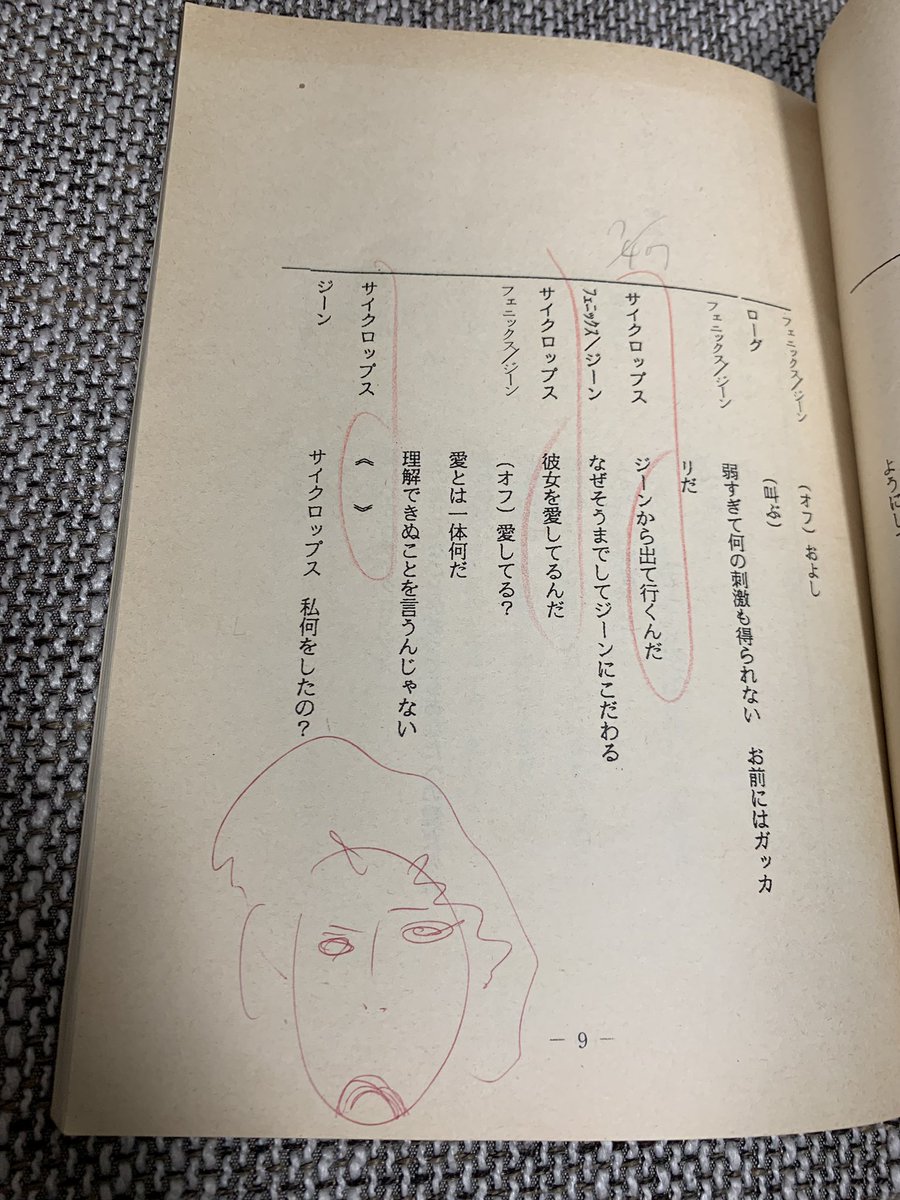 フェニックス/ジーン (オフ) およし
ローグ (叫ぶ)
フェニックス/ジーン 弱すぎて何の刺激も得られない お前にはガッカ
リだ
サイクロップス ジーンから出て行くんだ
フェニックス/ジーン なぜそうまでしてジーンにこだわる
サイクロップス 彼女を愛してるんだ
フェニックス/ジーン (オフ) 愛してる?
愛とは一体何だ
理解できぬことを言うんじゃない
サイクロップス 《 》
ジーン サイクロップス 私何をしたの?
— 9 —